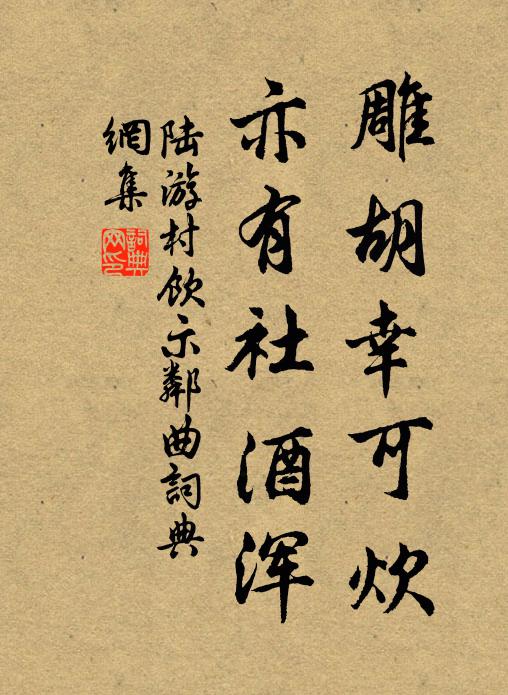 雕胡幸可炊
亦有社酒浑
陆游村飲示鄰曲詞典
網集
詞典
网印